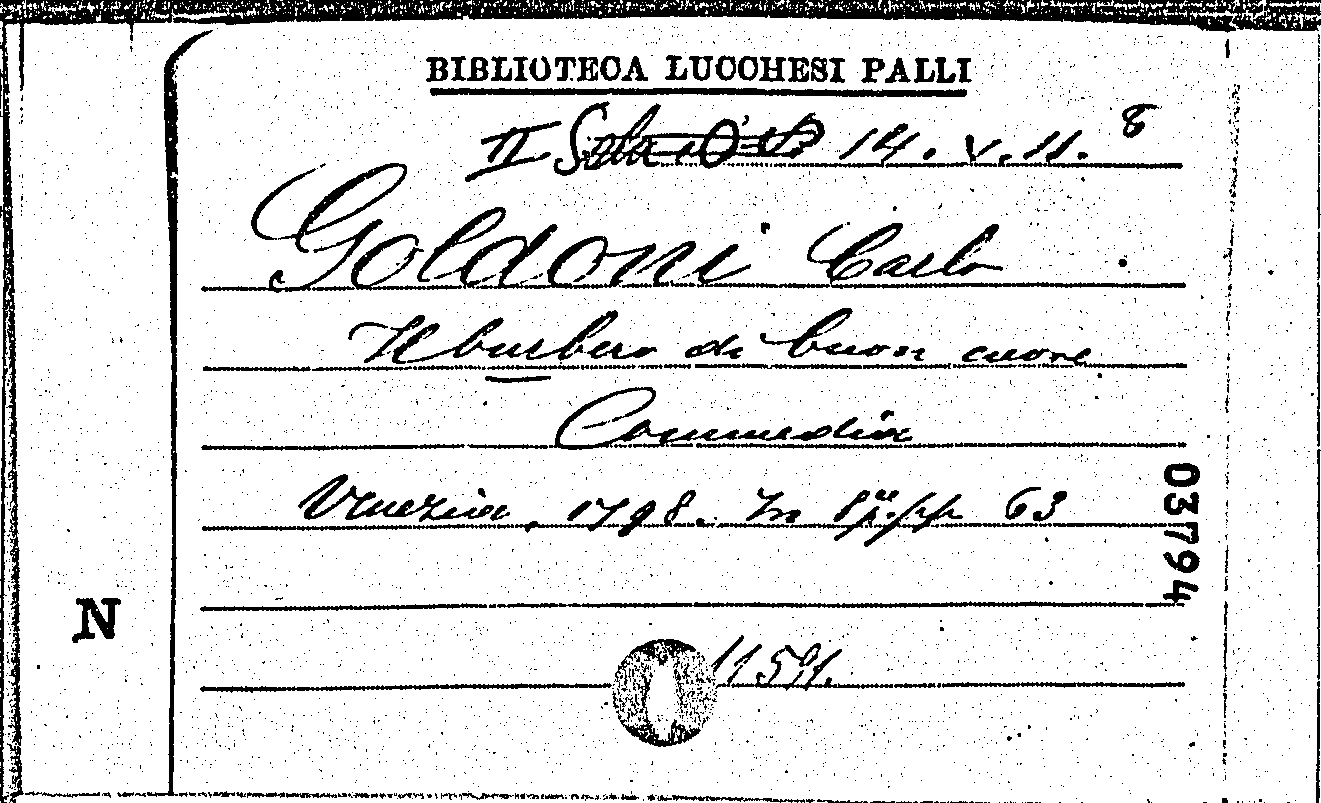 BIBLIOTECA LUCCHESI PALLI
II Sala 14. V. 11. 8
Goldoni Carlo
Il burbero di buon cuore
Commedia
Venezia, 1798. In 8º. pp 63
03794
N
11591.